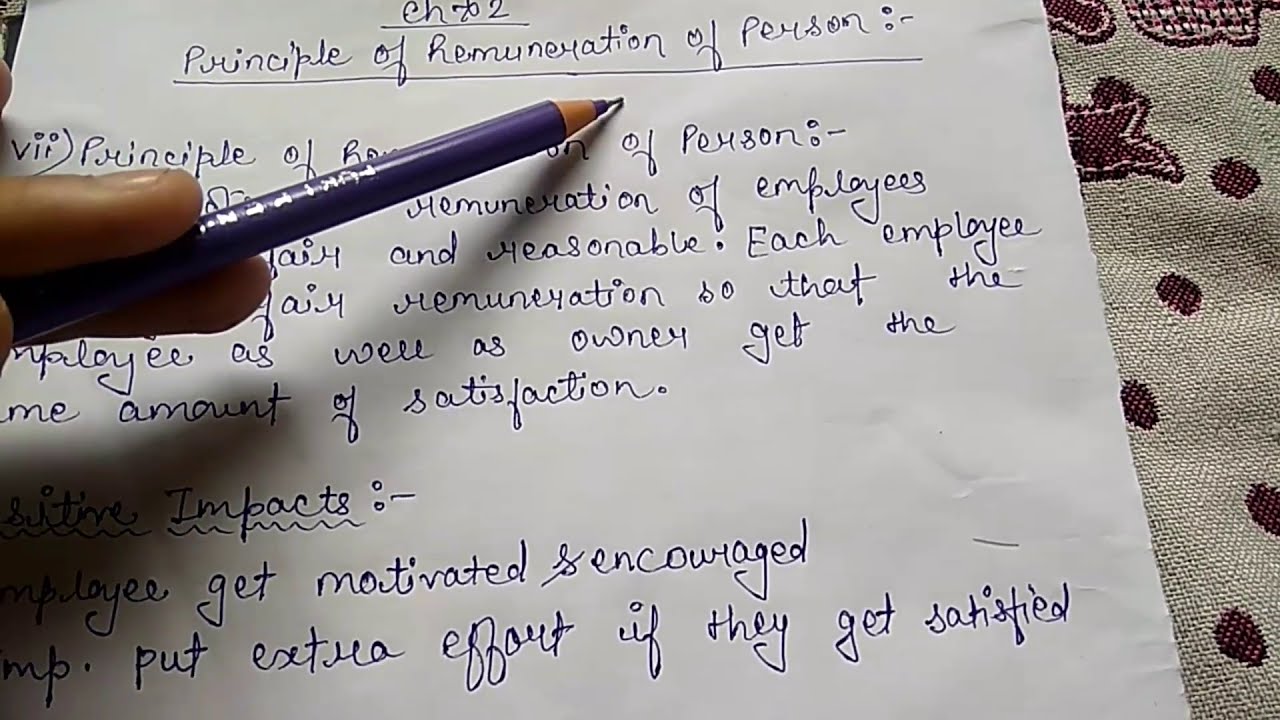 Ch 2
Principle of Remuneration of Person :-
vii) Principle of of Person:-
remuneration of employees
fair and reasonable. Each employee
fair remuneration so that the
employee as well as owner get the
amount of satisfaction.
Impacts :-
employee get motivated & encouraged
emp. put extra effort if they get satisfied